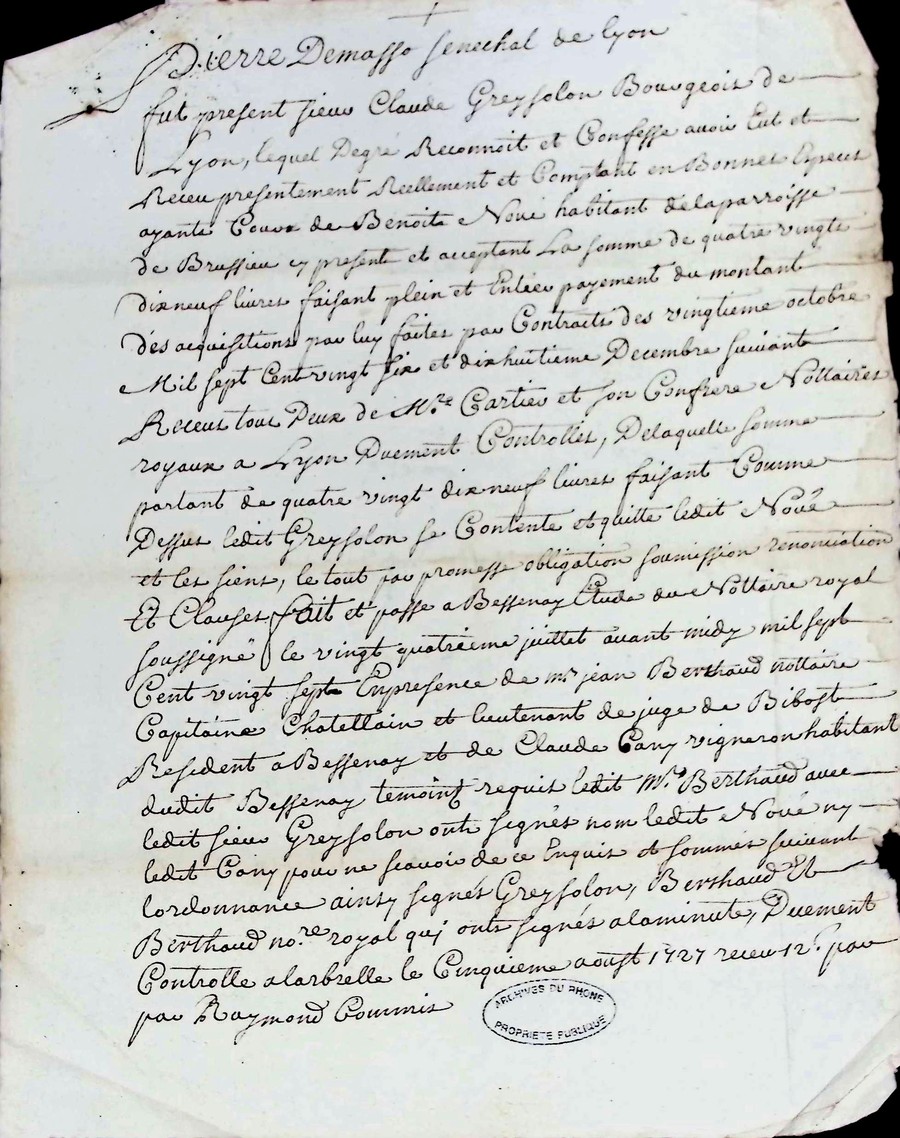 Pierre Demasso senechal de lyon
fut present sieur Claude Greysolon Bourgeois de
Lyon, lequel Degré Reconnoit et Confesse avoir Eut et
Receu presentement Reellement et Comptant en Bonnes Especes
ayants Cours de Benoite Nové habitant delaparroisse
de Brussieu cy present et acceptant La somme de quatre vingts
dixneuf livres faisant plein et Entier payement du montant
des acquisitions par luy faites par Contracts des vingtieme octobre
Mil sept Cent vingt six et dixhuitieme Decembre suivants
Receus tous Deux de Mre Cartier et son Confrere Nottaires
royaux a Lyon Duement Controlles, Delaquelle somme
partant de quatre vingt dixneuf livres faisant Comme
Dessus ledit Greysolon se Contente et quitte ledit Nové
et les siens, le tout par promesse obligation soumission renonciation
Et Clauses fait et passé a Bessenay Etude du Nottaire royal
soussigné le vingt quatrieme juillet avant midy mil sept
Cent vingt sept Enpresence de mr jean Berthaud nottaire
Capitaine Chatellain et lieutenant de juge de Bibost
Resident a Bessenay et de Claude Cany vigneron habitant
dudit Bessenay temoins requis ledit Mre Berthaud avec
ledit sieur Greysolon onts signés nom ledit Nové ny
ledit Cany pour ne scavoir de ce Enquis et sommés suivant
lordonnance ainsy signés Greysolon, Berthaud Et
Berthaud no.re royal qui onts signés alaminute, Duement
Controllé alarbrelle le Cinquieme aoust 1727 receu 12s par
par Raymond Commis
ARCHIVES DU RHONE
PROPRIETE PUBLIQUE